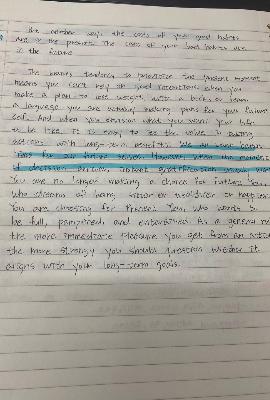 the costs of your good habits
are in the present. The costs of your bad habits are
in the future
The brain's tendency to prioritize the present moment
means you can't rely on good intentions. When you
make a plan to lose weight, write a book, or learn
a language you are actually making plans for your future
self. And when you envision what you want your life
to be like, it is easy to see the value in taking
actions with long-term benefits. We all want better
lives for our future selves. However, when the moment
of decision arrives, instant gratification usually wins
You are no longer making a choice for Future You,
who dreams of being fitter or wealthier or happier
You are choosing for Present You, who wants to
be full, pampered, and entertained. As a general rule
the more immediate pleasure you get from an action
the more strongly you should question whether it
aligns with your long-term goals.